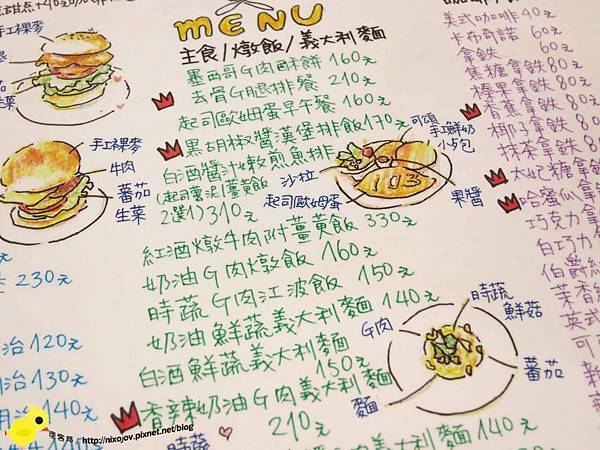 MENU
主食/燉飯/義大利麵
墨西哥G肉酥餅 160元
去骨G腿排餐 210元
起司歐姆蛋早午餐 160元
黑胡椒醬漢堡排飯170元
白酒醬汁嫩煎魚排
(起司薯泥/薑黃飯
2選1) 310元
紅酒燉牛肉附薑黃飯 330元
奶油G肉燉飯 160元
時蔬G肉江波飯 150元
奶油鮮蔬義大利麵 140元
白酒鮮蔬義大利麵
150元
香辣奶油G肉義大利麵
210元
時蔬
140元
手工裸麥
番茄
生菜
手工裸麥
牛肉
番茄
生菜
230元
治120元
治130元
治140元
可頌
手工鮮奶
小勺包
沙拉
起司歐姆蛋
果醬
時蔬
鮮菇
G肉
番茄
麵
美式咖啡40元
卡布奇諾 60元
拿鐵 60元
焦糖拿鐵 80元
榛果拿鐵 80元
香蕉拿鐵 80元
椰子拿鐵 80元
抹茶拿鐵 80元
太妃糖拿鐵
哈蜜瓜拿鐵
巧克力拿
白巧克力
伯爵
茉香
英式
可
痞客邦 http://nixojov.pixnet.net/blog